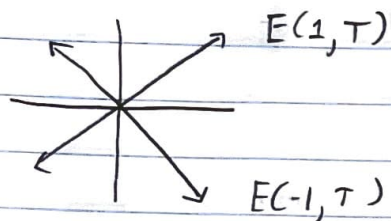 E(1,T)
E(-1,T)